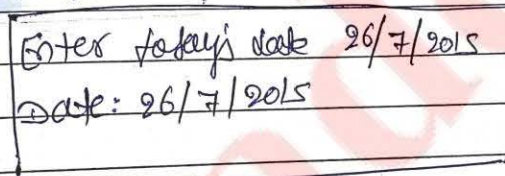 Enter today's date 26/7/2015
Date: 26/7/2015